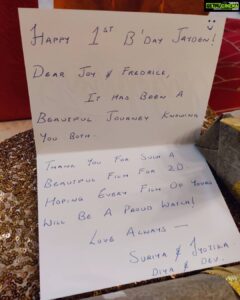 HAPPY 1ST B'DAY JAYDEN!
DEAR JOY & FREDRICK,
IT HAS BEEN A
BEAUTIFUL JOURNEY KNOWING
YOU BOTH.
THANK YOU FOR SUCH A
BEAUTIFUL FILM FOR 2D
HOPING EVERY FILM OF YOURS
WILL BE A PROUD WATCH!
LOVE ALWAYS —
SURIYA & JYOTIKA
DIYA & DEV.